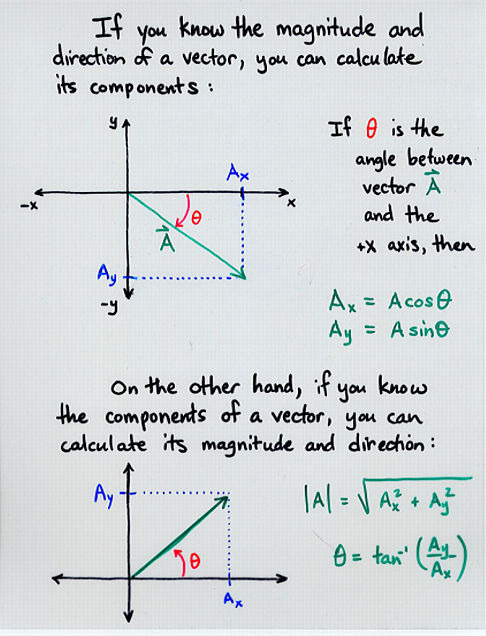 If you know the magnitude and
direction of a vector, you can calculate
its components:
y
Ax
-x
x
θ
A⃗
Ay
-y
If θ is the
angle between
vector A⃗
and the
+x axis, then
Ax = A cos θ
Ay = A sin θ
On the other hand, if you know
the components of a vector, you can
calculate its magnitude and direction:
Ay
θ
Ax
|A| = √(Ax² + Ay²)
θ = tan⁻¹ (Ay/Ax)